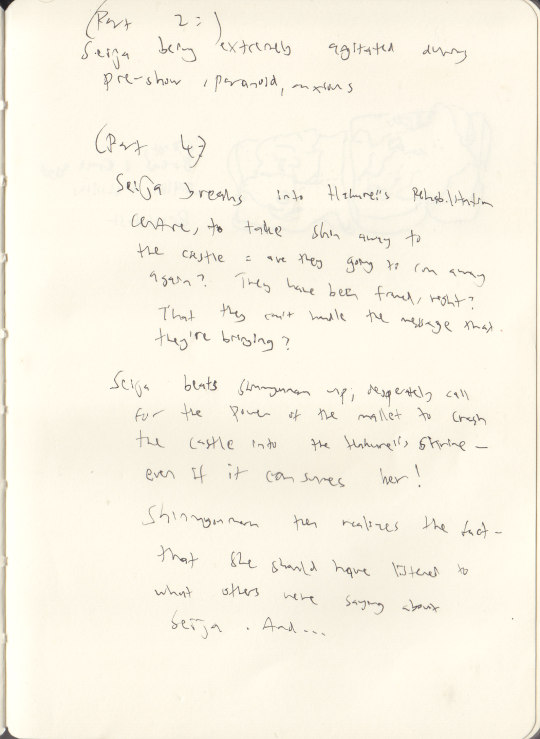 (Part 2:)
Seija being extremely agitated during
pre-show, paranoid, anxious
(Part 4:)
Seija breaks into Hakurei's Rehabilitation
centre, to take Shin away to
the castle = are they going to run away
again? They have been found, right?
That they can't handle the message that
they're bringing?
Seija beats Shinmyoumaru up; desperately call
for the power of the mallet to crash
the castle into the Hakurei's Shrine —
even if it consumes her!
Shinmyoumaru then realizes the fact —
that she should have listened to
what others were saying about
Seija. And...